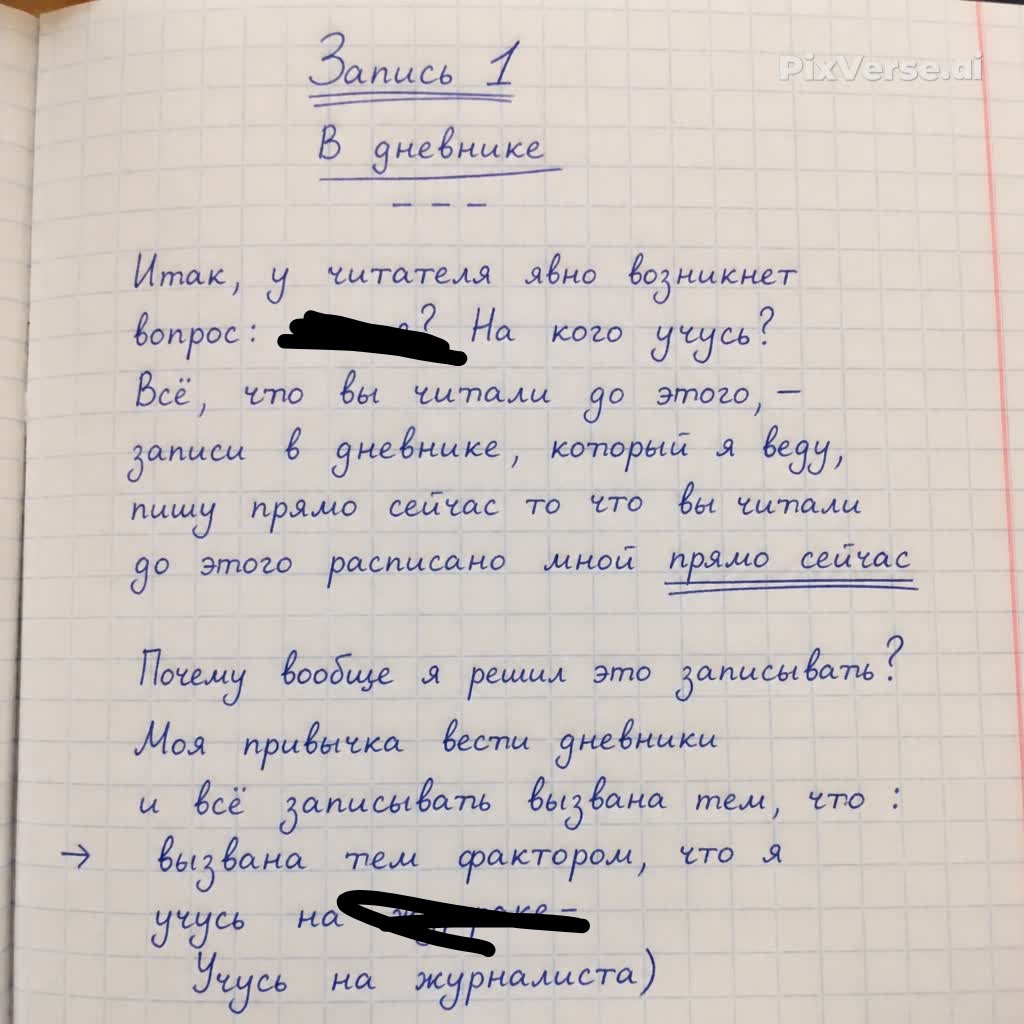 PixVerse.ai
Запись 1
В дневнике
- - -
Итак, у читателя явно возникнет
вопрос: ? На кого учусь?
Всё, что вы читали до этого, –
записи в дневнике, который я веду,
пишу прямо сейчас то что вы читали
до этого расписано мной прямо сейчас
Почему вообще я решил это записывать?
Моя привычка вести дневники
и всё записывать вызвана тем, что :
→ вызвана тем фактором, что я
учусь на
Учусь на журналиста)